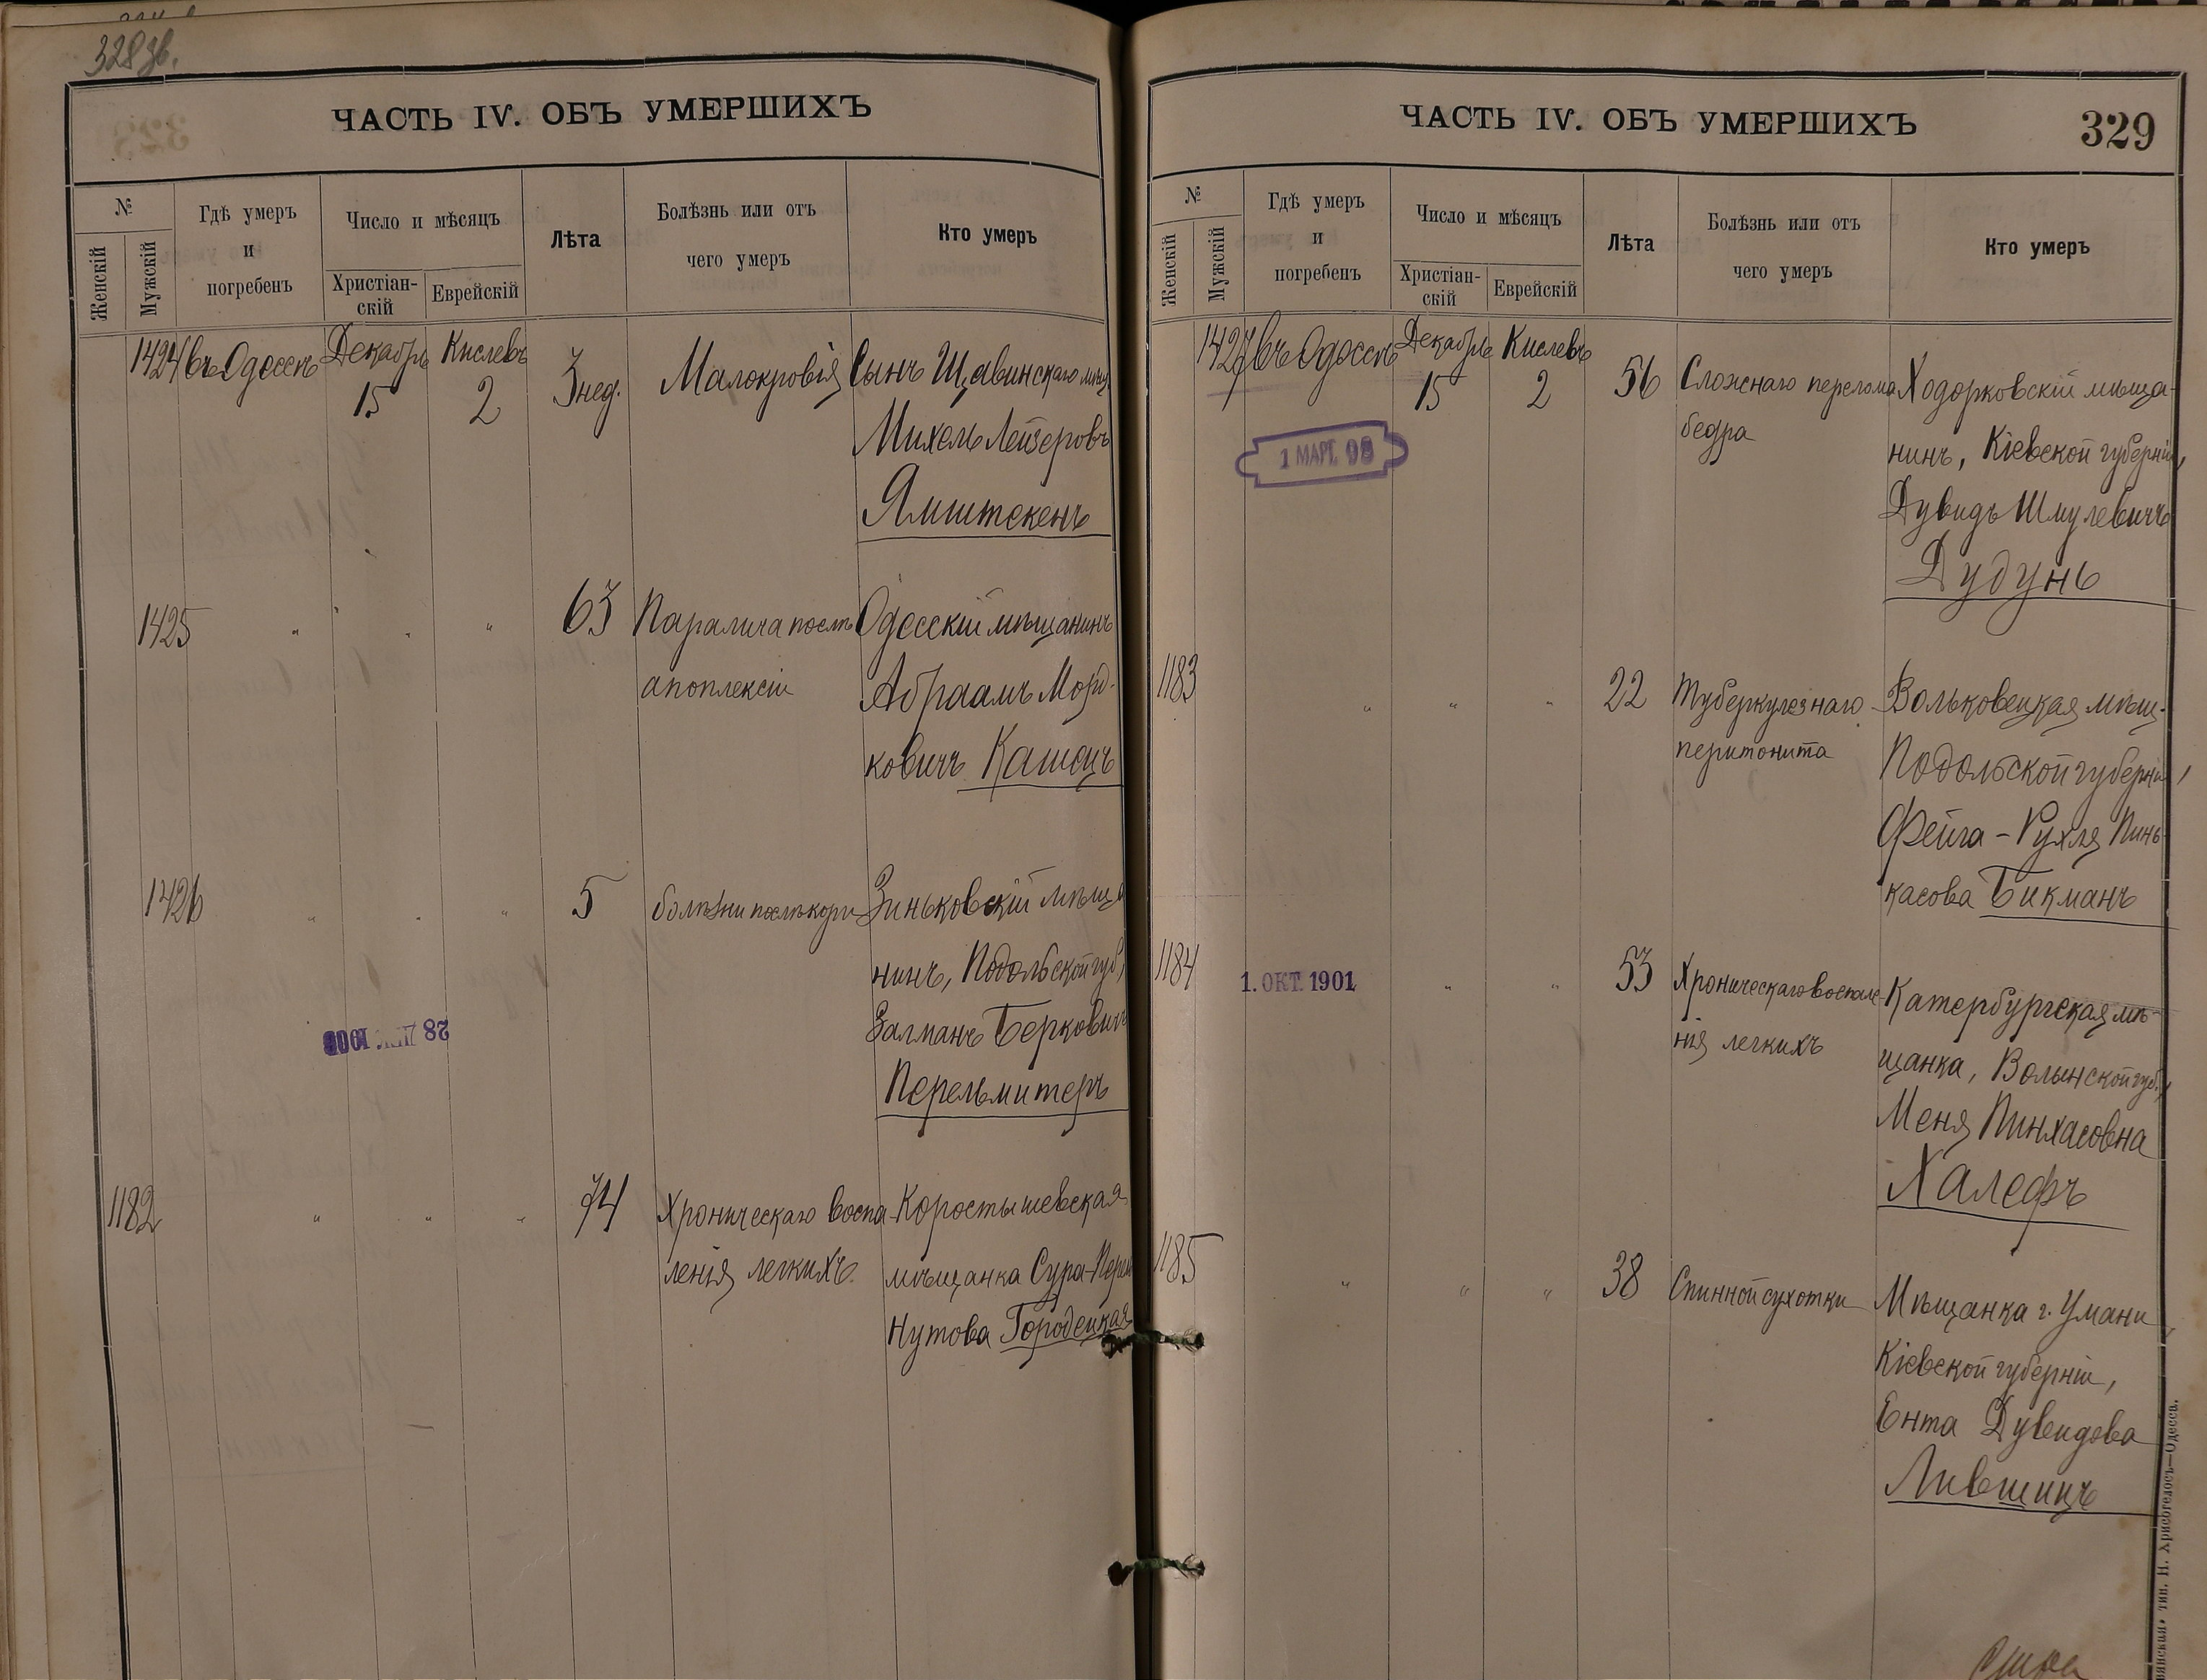 328 зв.
ЧАСТЬ IV. ОБЪ УМЕРШИХЪ
№
Женскій
Мужскій
Гдѣ умеръ
и
погребенъ
Число и мѣсяцъ
Христіан-
скій
Еврейскій
Лѣта
Болѣзнь или отъ
чего умеръ
Кто умеръ
1424 въ Одессѣ Декабрь Кислевъ
15 2
3 нед. Малокровія Сынъ Щавинскаго мѣщ.
Михель Лейзеровъ
Ямштекенъ
1425 " " " 63 Паралича послѣ Одесскій мѣщанинъ
апоплексіи Абраамъ Морд-
ковичъ Кашецъ
1426 " " " 5 болѣзни послѣ кори Зиньковскій мѣща
нинъ, Подольской губ,
Залманъ Берковичъ
Перельмитеръ
1182 " " " 74 Хроническаго воспа- Коростышевская
ленія легкихъ. мѣщанка Сура-
Нутова Городецкая
ЧАСТЬ IV. ОБЪ УМЕРШИХЪ
329
№
Женскій
Мужскій
Гдѣ умеръ
и
погребенъ
Число и мѣсяцъ
Христіан-
скій
Еврейскій
Лѣта
Болѣзнь или отъ
чего умеръ
Кто умеръ
1427 въ Одессѣ Декабрь Кислевъ
15 2
1 МАРТ. 98
56 Сложнаго перелома Ходорковскій мѣща-
бедра нинъ, Кіевской губерніи,
Дувидъ Шмулевичъ
Дудунь
1183 " " " 22 Туберкулезнаго Вольковецкая мѣщ.
перитонита Подольской губерніи,
Фейга-Рухля Пинь-
касова Бикманъ
1184 1. ОКТ. 1901 " " 53 Хроническаго воспале- Катербургская мѣ-
нія легкихъ щанка, Волынской губ.,
Меня Пинхасовна
Халефъ
1185 " " " 38 Спинной сухотки Мѣщанка г. Умани
Кіевской губерніи,
Ента Дувидова
Лившицъ
тип. Н. Хрисогелосъ—Одесса.